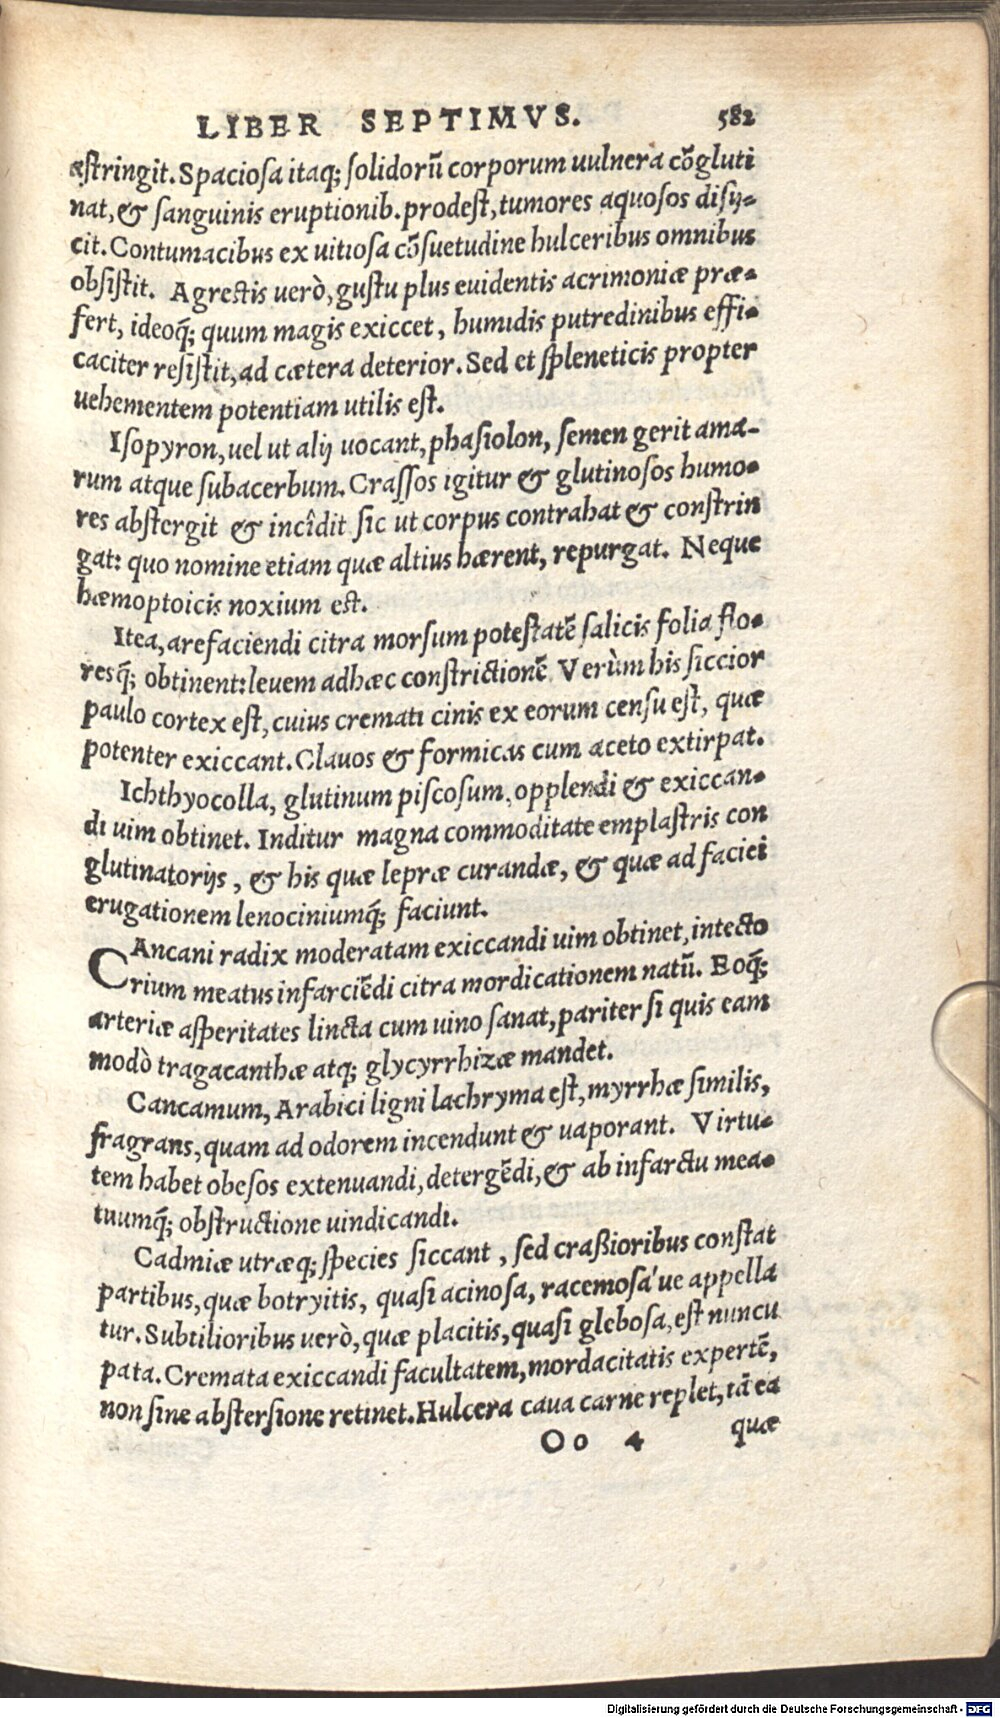 LIBER SEPTIMVS. 582
æstringit. Spaciosa itaq; solidorū corporum uulnera cōgluti
nat, & sanguinis eruptionib. prodest, tumores aquosos disij-
cit. Contumacibus ex uitiosa cōsuetudine hulceribus omnibus
obsistit. Agrestis uerò, gustu plus euidentis acrimoniæ præ-
fert, ideoq́; quum magis exiccet, humidis putredinibus effi-
caciter resistit, ad cætera deterior. Sed et spleneticis propter
uehementem potentiam utilis est.
Isopyron, uel ut alij uocant, phasiolon, semen gerit ama-
rum atque subacerbum. Crassos igitur & glutinosos humo-
res abstergit & incîdit sic ut corpus contrahat & constrin
gat: quo nomine etiam quæ altius hærent, repurgat. Neque
hæmoptoicis noxium est.
Itea, arefaciendi citra morsum potestatē salicis folia flo-
resq́; obtinent: leuem adhæc constrictionē Verùm his siccior
paulo cortex est, cuius cremati cinis ex eorum censu est, quæ
potenter exiccant. Clauos & formicas cum aceto extirpat.
Ichthyocolla, glutinum piscosum, opplendi & exiccan-
di uim obtinet. Inditur magna commoditate emplastris con
glutinatorijs, & his quæ lepræ curandæ, & quæ ad faciei
erugationem lenociniumq́; faciunt.
CAncani radix moderatam exiccandi uim obtinet, intecto
rium meatus infarciēdi citra mordicationem natū. Eoq́;
arteriæ asperitates lincta cum uino sanat, pariter si quis eam
modò tragacanthæ atq; glycyrrhizæ mandet.
Cancamum, Arabici ligni lachryma est, myrrhæ similis,
fragrans, quam ad odorem incendunt & uaporant. Virtu-
tem habet obesos extenuandi, detergēdi, & ab infarctu mea-
tuumq́; obstructione uindicandi.
Cadmiæ utræq; species siccant, sed craßioribus constat
partibus, quæ botryitis, quasi acinosa, racemosa'ue appella
tur. Subtilioribus uerò, quæ placitis, quasi glebosa, est nuncu
pata. Cremata exiccandi facultatem, mordacitatis expertē,
non sine abstersione retinet. Hulcera caua carne replet, tā ea
Oo 4 quæ
Digitalisierung gefördert durch die Deutsche Forschungsgemeinschaft - DFG